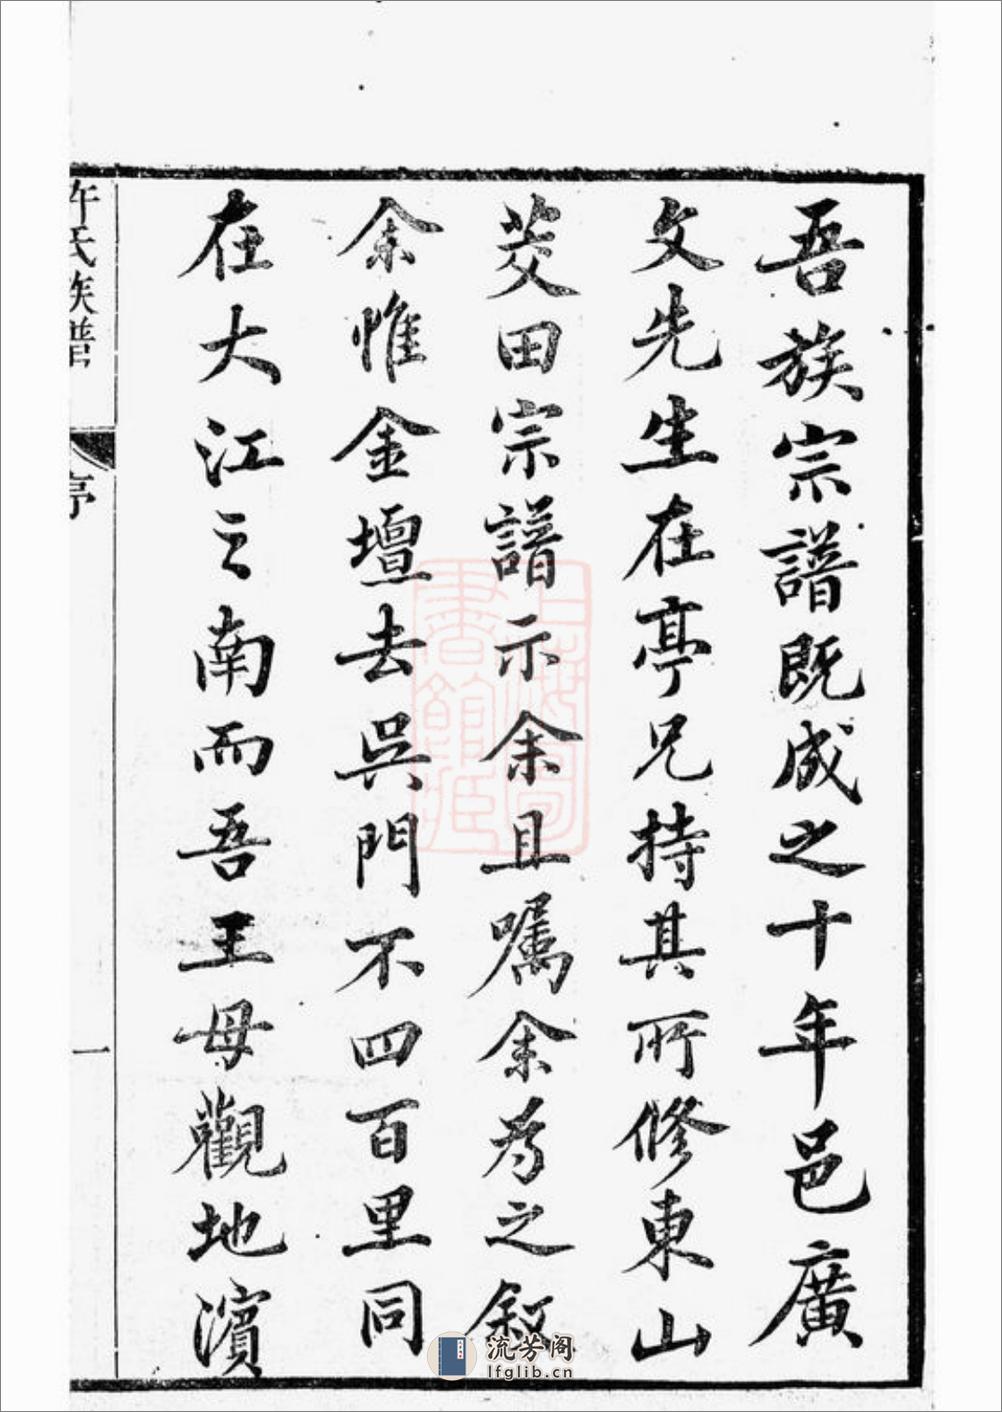 吾族宗譜既成之十年邑廣
文先生在亭兄持其所修東山
茭田宗譜示余且嘱余为之叙
余惟金壇去吳門不四百里同
在大江之南而吾王母觀地濱
許氏族譜
序
一
上海圖書館藏
流芳阁
lfglib.cn